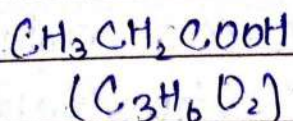 CH₃CH₂COOH
(C₃H₆O₂)